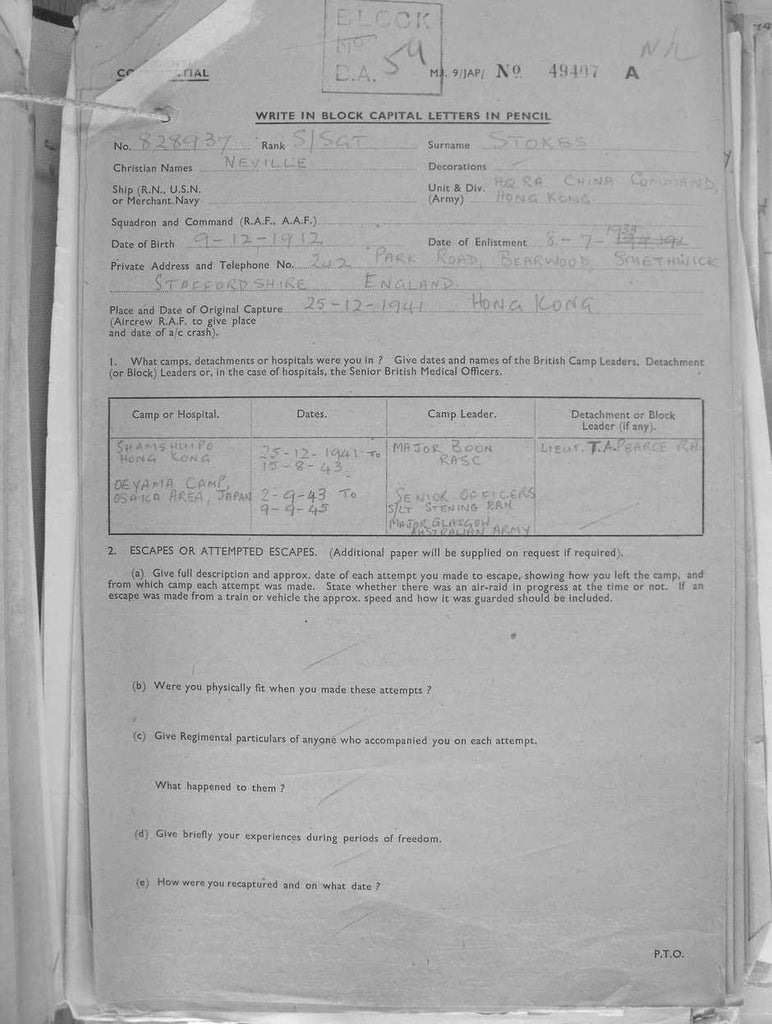 BLOCK
No 59
C.A.
NIL
M.I. 9/JAP/ No 49407 A
WRITE IN BLOCK CAPITAL LETTERS IN PENCIL
No. 828937 Rank S/SGT Surname STOKES
Christian Names NEVILLE Decorations
Ship (R.N., U.S.N. or Merchant Navy Unit & Div. (Army) HQ RA CHINA COMMAND, HONG KONG
Squadron and Command (R.A.F., A.A.F.)
Date of Birth 9-12-1912 Date of Enlistment 8-7-1933
Private Address and Telephone No. 242 PARK ROAD, BEARWOOD, SMETHWICK
STAFFORDSHIRE ENGLAND.
Place and Date of Original Capture 25-12-1941 HONG KONG
(Aircrew R.A.F. to give place
and date of a/c crash).
1. What camps, detachments or hospitals were you in ? Give dates and names of the British Camp Leaders, Detachment
(or Block) Leaders or, in the case of hospitals, the Senior British Medical Officers.
Camp or Hospital. Dates. Camp Leader. Detachment or Block Leader (if any).
SHAMSHUIPO HONG KONG 25-12-1941 TO 15-8-43 MAJOR BOON RASC LIEUT. T.A. PEARCE RA
OEYAMA CAMP, OSAKA AREA, JAPAN 2-9-43 TO 9-9-45 SENIOR OFFICERS S/LT STENING RAN MAJOR GLASGOW AUSTRALIAN ARMY
2. ESCAPES OR ATTEMPTED ESCAPES. (Additional paper will be supplied on request if required).
(a) Give full description and approx. date of each attempt you made to escape, showing how you left the camp, and
from which camp each attempt was made. State whether there was an air-raid in progress at the time or not. If an
escape was made from a train or vehicle the approx. speed and how it was guarded should be included.
(b) Were you physically fit when you made these attempts ?
(c) Give Regimental particulars of anyone who accompanied you on each attempt.
What happened to them ?
(d) Give briefly your experiences during periods of freedom.
(e) How were you recaptured and on what date ?
P.T.O.